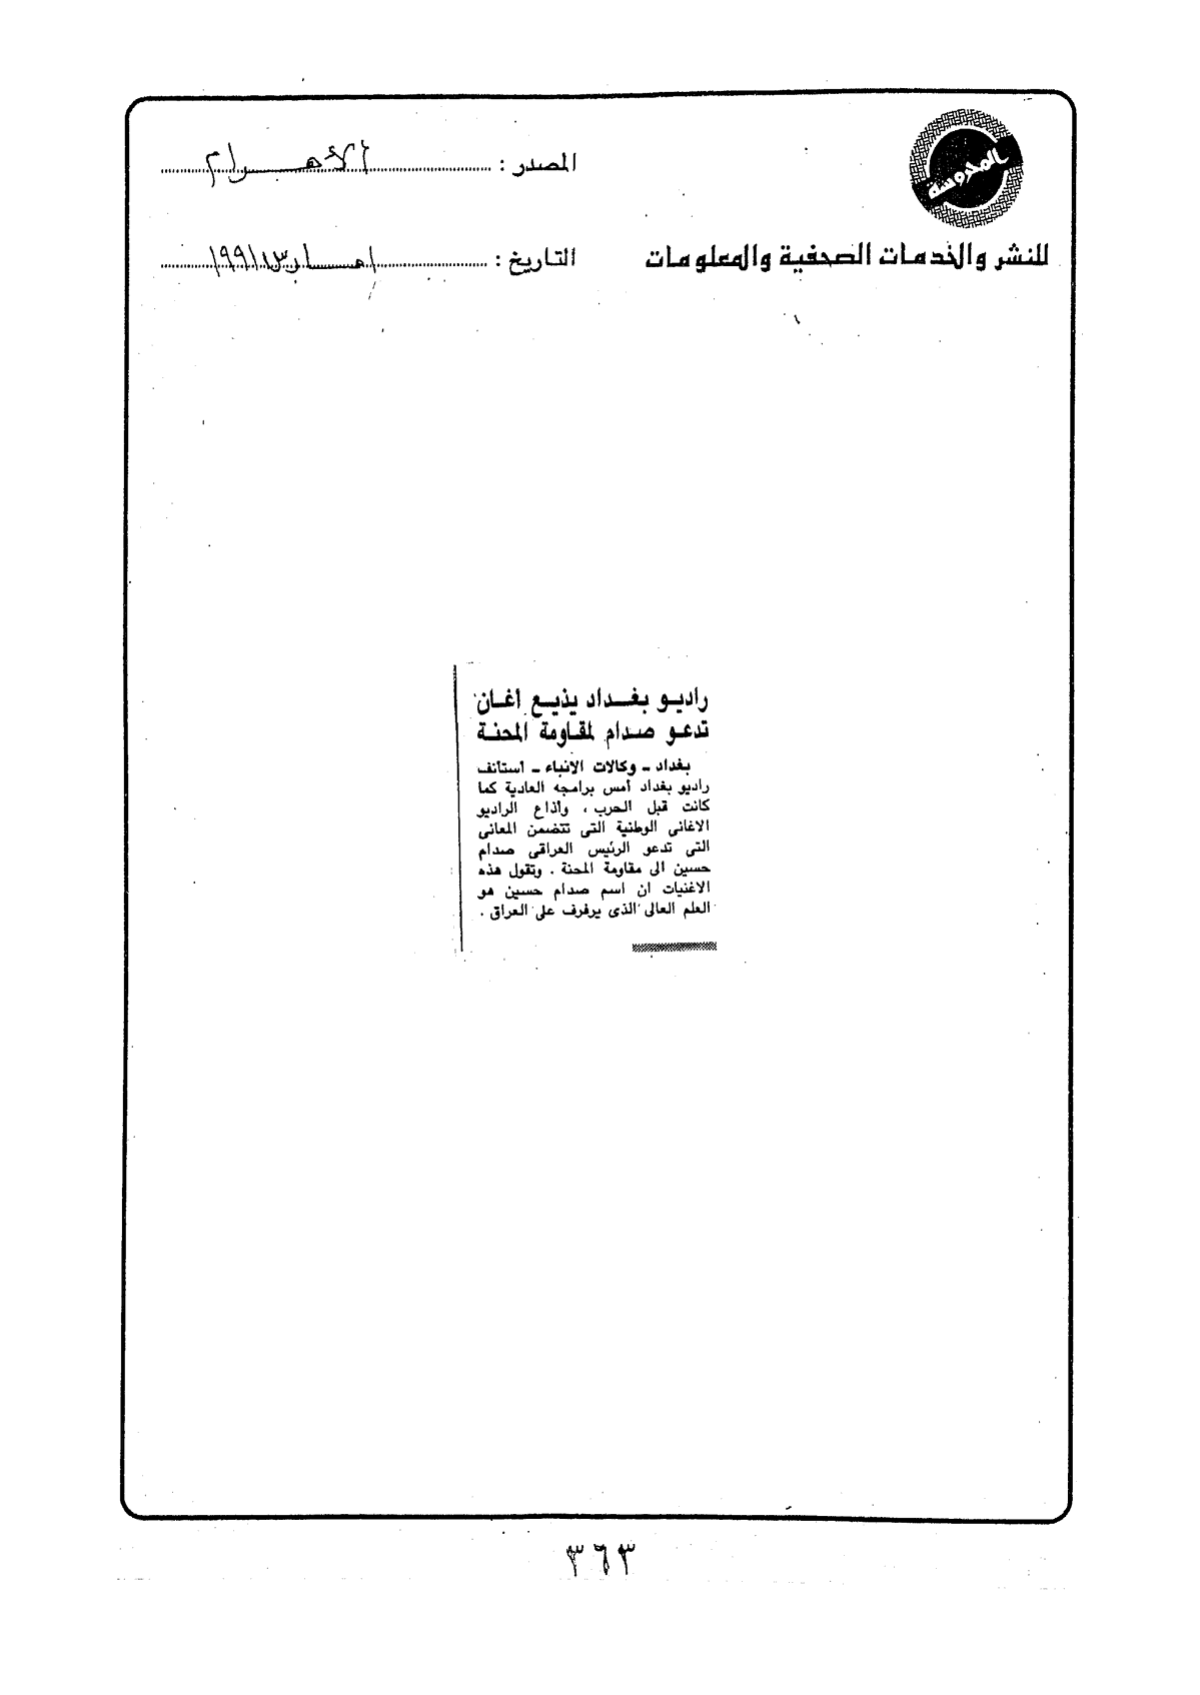 المحروسة
المصدر : الأهرام
للنشر والخدمات الصحفية والمعلومات
التاريخ : ١ مارس ١٩٩١
راديو بغداد يذيع اغان
تدعو صدام لمقاومة المحنة
بغداد - وكالات الانباء - استأنف
راديو بغداد أمس برامجه العادية كما
كانت قبل الحرب ، واذاع الراديو
الاغانى الوطنية التى تتضمن المعانى
التى تدعو الرئيس العراقى صدام
حسين الى مقاومة المحنة . وتقول هذه
الاغنيات ان اسم صدام حسين هو
العلم العالى الذى يرفرف على العراق .
٣٦٣